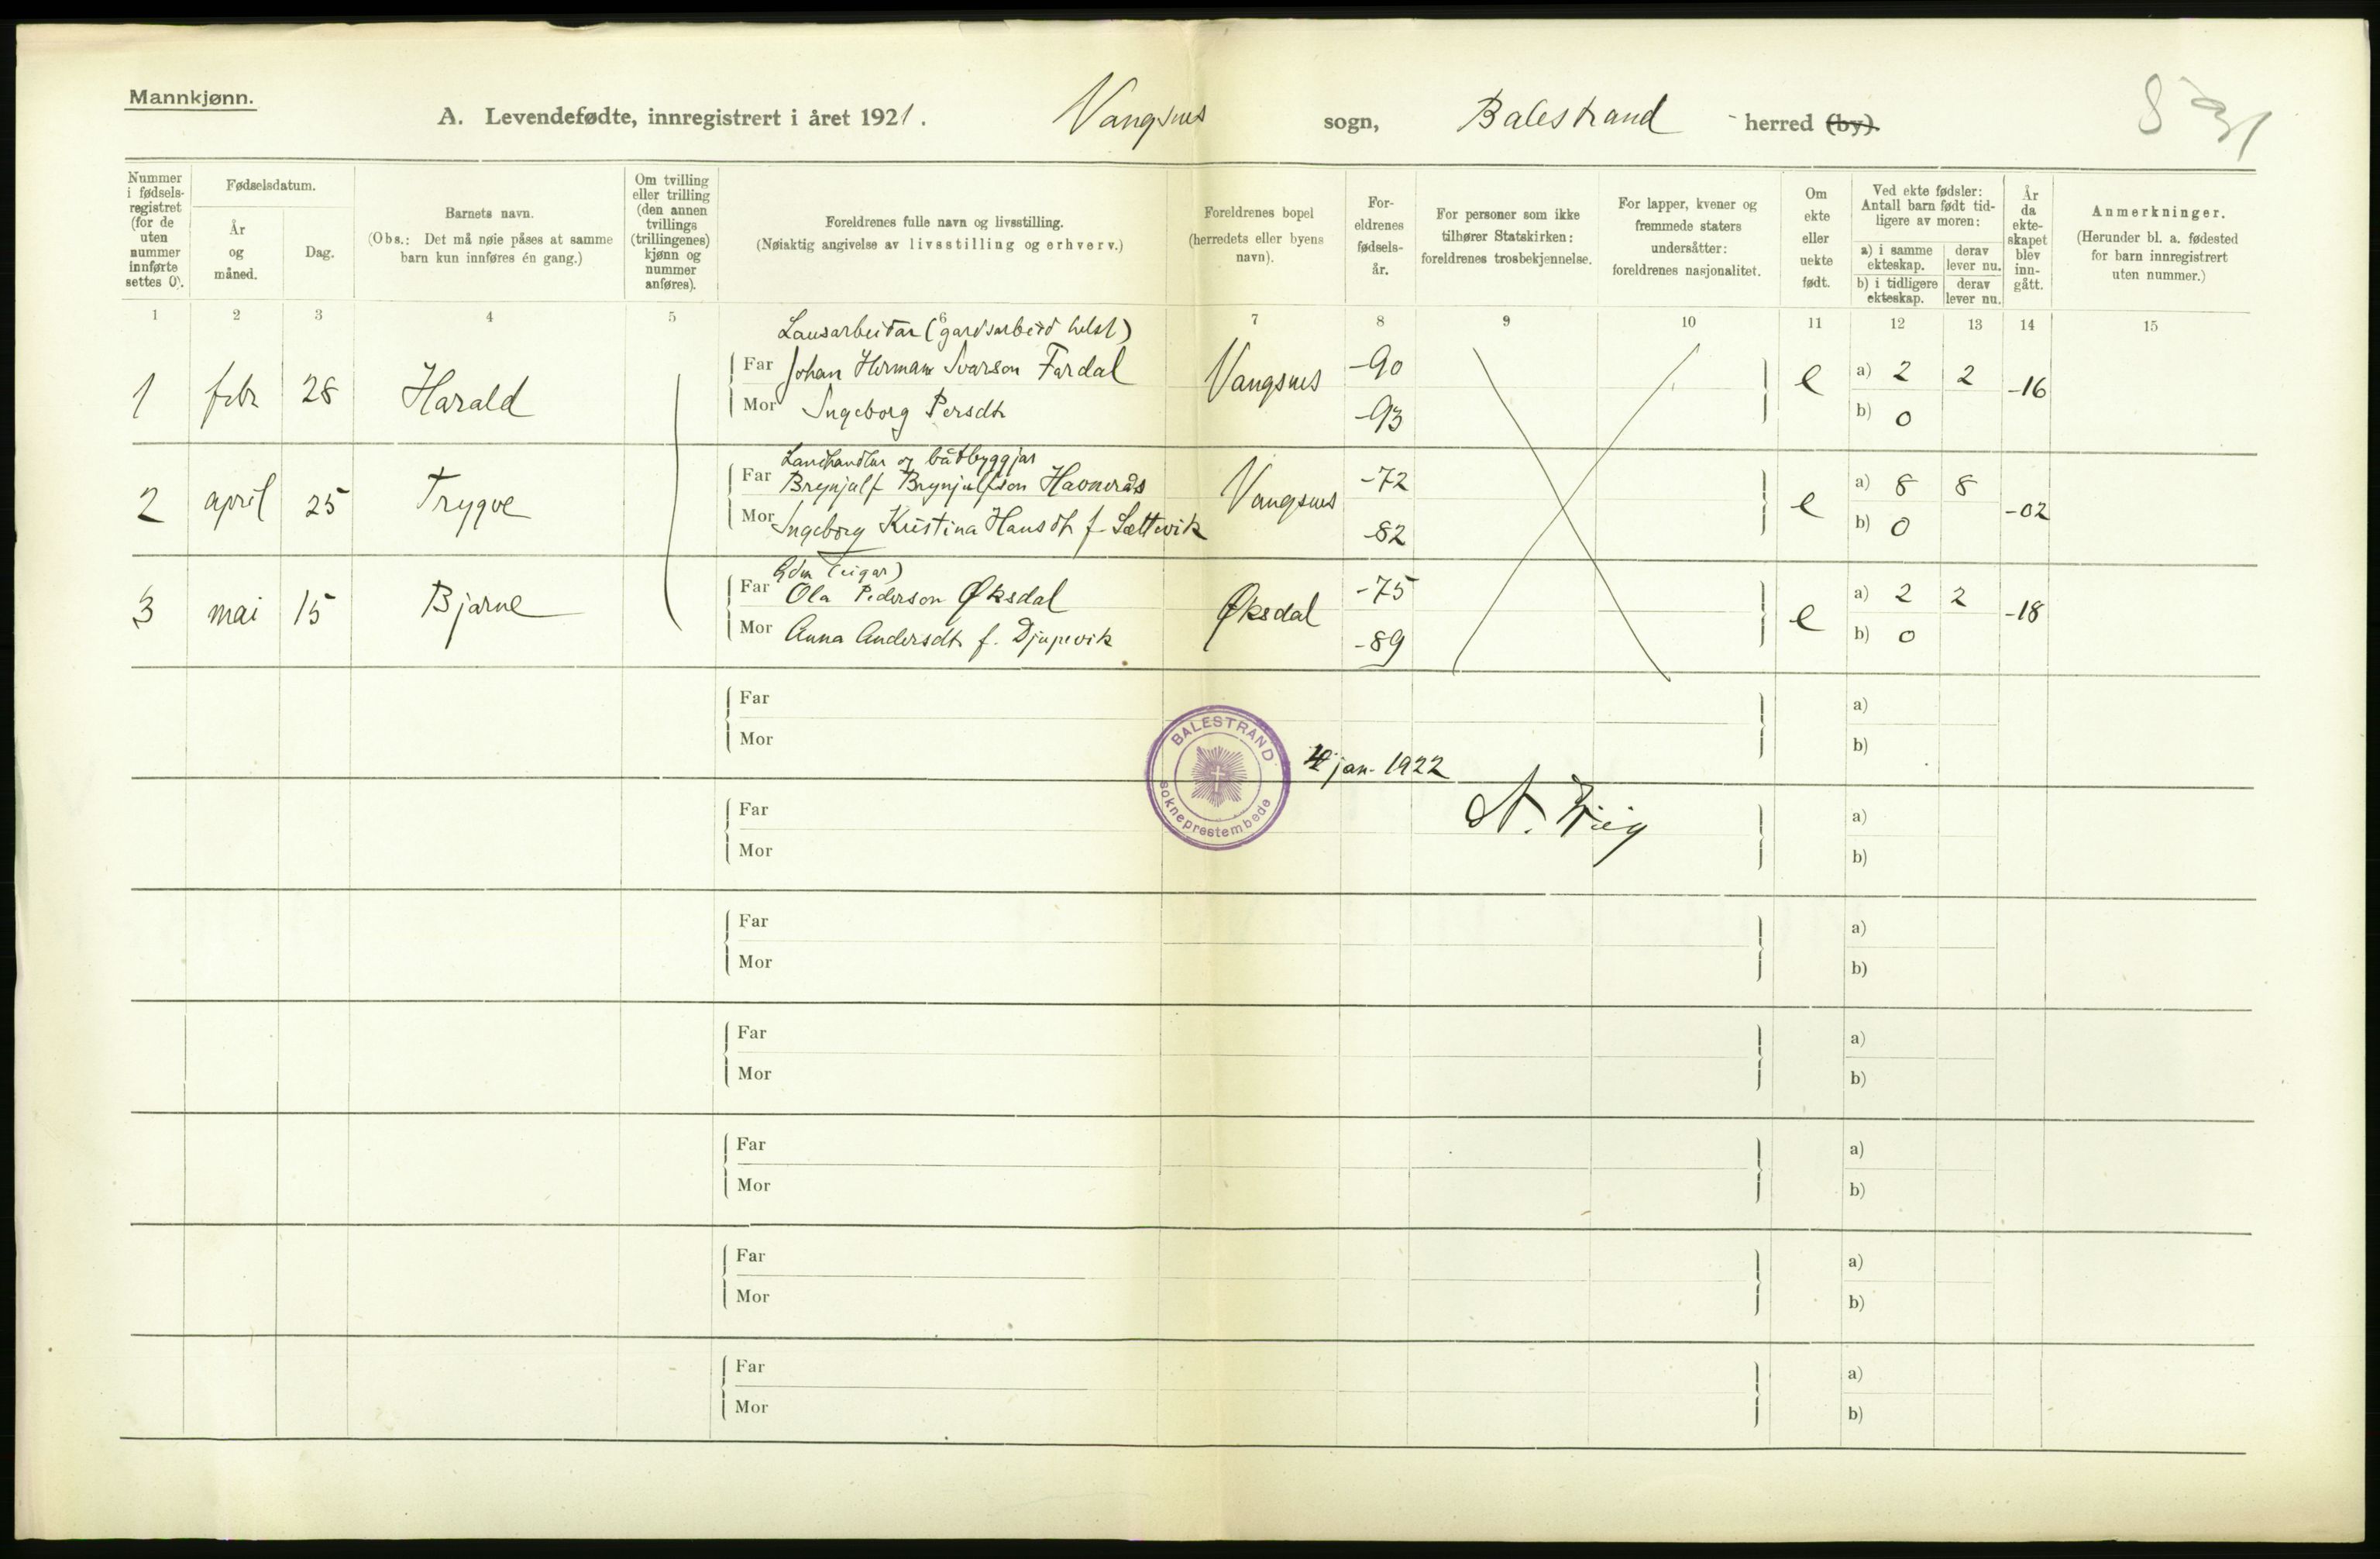 Mannkjønn.
A. Levendefødte, innregistrert i året 1921. Vangsnes sogn, Balestrand herred (by).
Nummer i fødsels-registret (for de uten nummer innførte settes 0).
Fødselsdatum.
År og måned.
Dag.
Barnets navn.
(Obs.: Det må nøie påses at samme barn kun innføres én gang.)
Om tvilling eller trilling (den annen tvillings (trillingenes) kjønn og nummer anføres).
Foreldrenes fulle navn og livsstilling.
(Nøiaktig angivelse av livsstilling og erhverv.)
Foreldrenes bopel (herredets eller byens navn).
For-eldrenes fødsels-år.
For personer som ikke tilhører Statskirken: foreldrenes trosbekjennelse.
For lapper, kvener og fremmede staters undersåtter: foreldrenes nasjonalitet.
Om ekte eller uekte født.
Ved ekte fødsler: Antall barn født tid-ligere av moren:
a) i samme ekteskap.
derav lever nu.
b) i tidligere ekteskap.
derav lever nu.
År da ekte-skapet blev inn-gått.
Anmerkninger.
(Herunder bl. a. fødested for barn innregistrert uten nummer.)
1 2 3 4 5 6 7 8 9 10 11 12 13 14 15
Lausarbeidar (gardsarbeid helst)
1 febr 28 Harald Far Johan Herman Ivarson Fardal Vangsnes -90 e a) 2 2 -16
Mor Ingeborg Persdtr -93 b) 0
Landhandlar og båtbyggjar
2 april 25 Trygve Far Brynjulf Brynjulfson Havnerås Vangsnes -72 e a) 8 8 -02
Mor Ingeborg Kristina Hansdtr f. Sættevik -82 b) 0
Gdm (eigar)
3 mai 15 Bjarne Far Ola Pederson Øksdal Øksdal -75 e a) 2 2 -18
Mor Anna Andersdtr f. Djupevik -89 b) 0
Far a)
Mor b)
BALESTRAND
sokneprestembede
jan. 1922
Far a)
Mor b)
Far a)
Mor b)
Far a)
Mor b)
Far a)
Mor b)
Far a)
Mor b)
Far a)
Mor b)